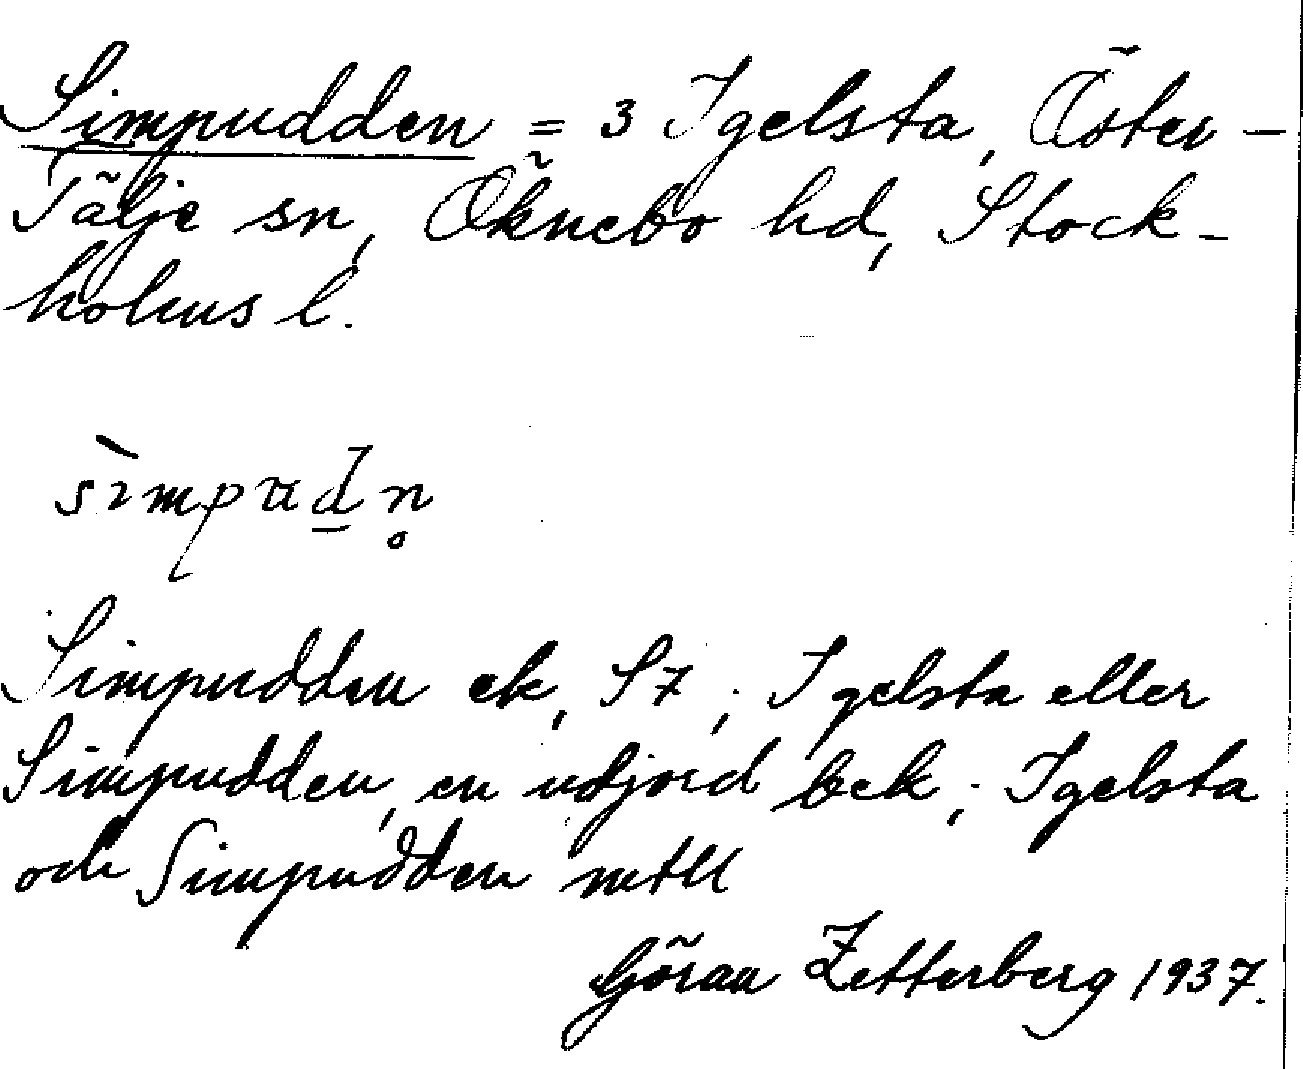 Simpudden = 3 Igelsta, Öster-
Tälje sn, Öknebo hd, Stock-
holms l.
sìmpudn̥
Simpudden ek, S7; Igelsta eller
Simpudden, en udjord bek; Igelsta
och Simpudden mtll
Göran Zetterberg 1937.